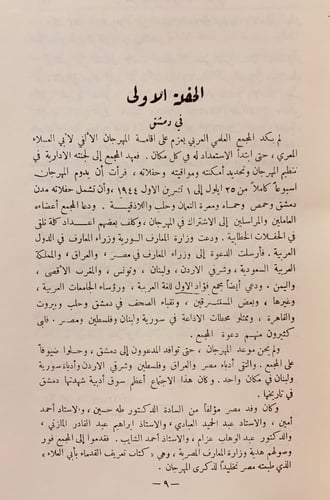 الحفلة الاولى
في دمشق
لم يكد المجمع العلمي العربي يعزم على اقامة المهرجان الألفي لأبي العلاء
المعري، حتى ابتدأ الاستعداد له في كل مكان. فعهد المجمع إلى لجنته الادارية في
تنظيم المهرجان وتحديد أمكنته ومواقيته وحفلاته، فرأت أن يدوم المهرجان
اسبوعاً كاملاً من ٢٥ ايلول إلى ١ تشرين الاول ١٩٤٤ وأن تشمل حفلاته مدن
دمشق وحمص وحماة ومعرة النعمان وحلب واللاذقية. ودعا المجمع أعضاءه
العاملين والمراسلين إلى الاشتراك في المهرجان، وكلف بعضهم اعداد كلمة تلقى
في الحفلات الخطابية. ودعت وزارة المعارف السورية وزراء المعارف في الدول
العربية. فأرسلت الدعوة إلى وزراء المعارف في مصر، والعراق، والمملكة
العربية السعودية، وشرقي الاردن، ولبنان، وتونس، والمغرب الاقصى،
واليمن. ودعي أيضاً مجمع فؤاد الاول للغة العربية، ورؤساء الجامعات العربية،
وغيرها، وبعض المستشرقين، ونقباء الصحف في دمشق وحلب وبيروت
والقاهرة، وممثلو محطات الاذاعة في سورية ولبنان وفلسطين ومصر. فلبى
كثيرون منهم دعوة المجمع.
ولم يحن موعد المهرجان، حتى توافد المدعوون إلى دمشق، وحلوا ضيوفاً
على المجمع. والتقى أدباء مصر والعراق وفلسطين وشرقي الاردن وأدباء سورية
ولبنان في مكان واحد. وكان هذا الاجتماع أعظم سوق أدبية شهدتها دمشق
في تاريخها.
وكان وفد مصر مؤلفاً من السادة الدكتور طه حسين، والاستاذ أحمد
أمين، والاستاذ عبد الحميد العبادي، والاستاذ ابراهيم عبد القادر المازني،
والدكتور عبد الوهاب عزام، والاستاذ أحمد الشايب. فقدموا إلى المجمع فور
وصولهم هدية وزارة المعارف المصرية، وهي «كتاب تعريف القدماء بأبي العلاء»
الذي طبعته مصر تخليداً لذكرى المهرجان.
— ٩ —